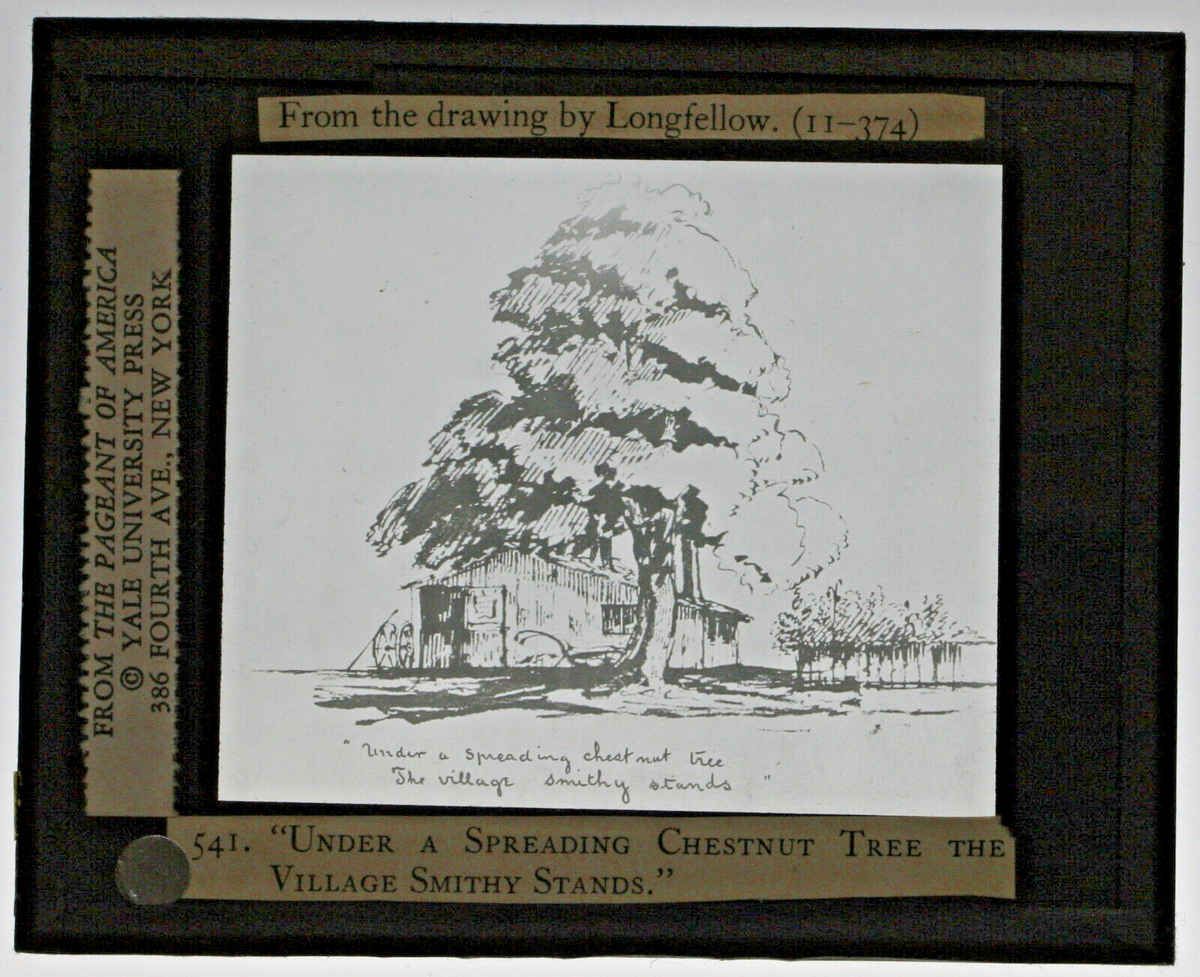 From the drawing by Longfellow. (11–374)
FROM THE PAGEANT OF AMERICA
© YALE UNIVERSITY PRESS
386 FOURTH AVE., NEW YORK
" Under a spreading chestnut tree
The village smithy stands "
541. “UNDER A SPREADING CHESTNUT TREE THE
VILLAGE SMITHY STANDS.”